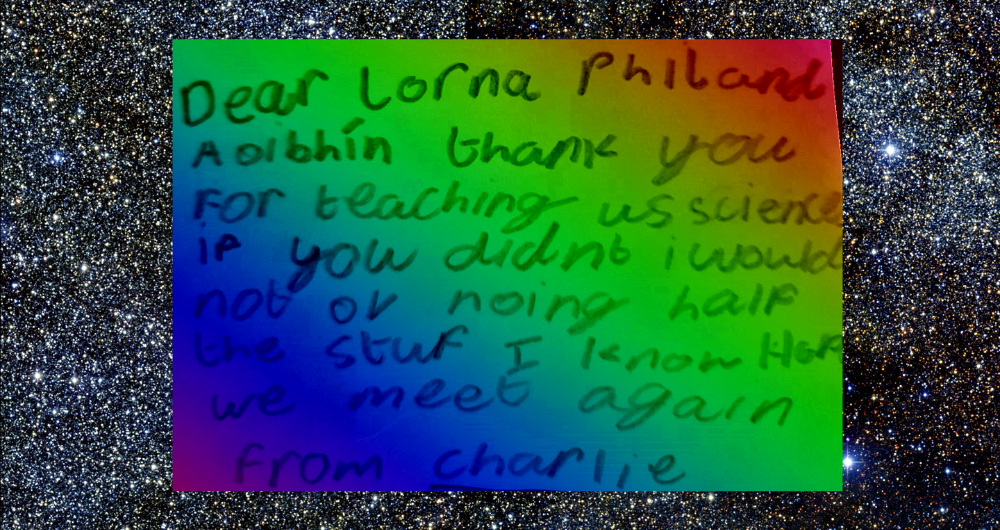 Dear Lorna Phil and
Aoibhín thank you
For teaching us science
if you didnt i would
not ov noing half
the stuf I know HoP
we meet again
from charlie